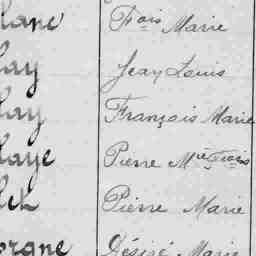 lane Fois Marie
lay Jean Louis
lay François Marie
laye Pierre Mie Fois
let Pierre Marie
orgne Désiré Marie